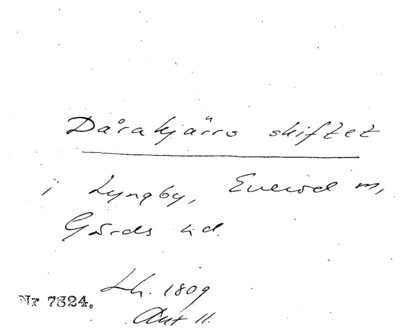 Dårakjärrs skiftet
i Lyngby, Everöd m,
Gärds hd.
Lh. 1809
Akt 11.
Nr 7324.